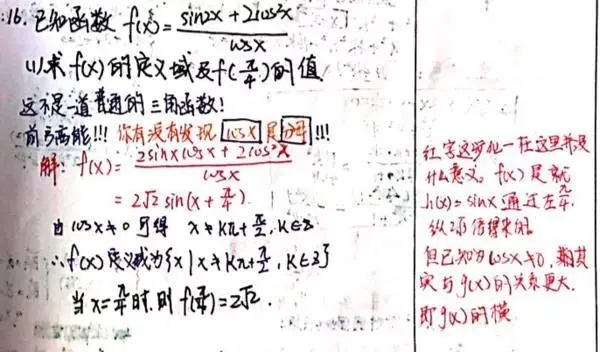 16. 已知函数 f(x)=(sin2x+2cos²x)/cosx
(1)求f(x)的定义域及f(π/4)的值
这不是一道普通的三角函数!
前方高能!!! 你有没有发现 cosx 是分母!!!
解: f(x)=(2sinxcosx+2cos²x)/cosx
=2√2 sin(x+π/4)
由cosx≠0可得 x≠kπ+π/2, k∈Z
∴f(x)定义域为{x|x≠kπ+π/2, k∈Z}
当x=π/4时,则f(π/4)=2√2.
红字这步化一在这里并没
什么意义. f(x)是就
h(x)=sinx通过左π/4.
纵2√2倍得来的.
但已知cosx≠0,
实与g(x)的关系更大.
即g(x)的横